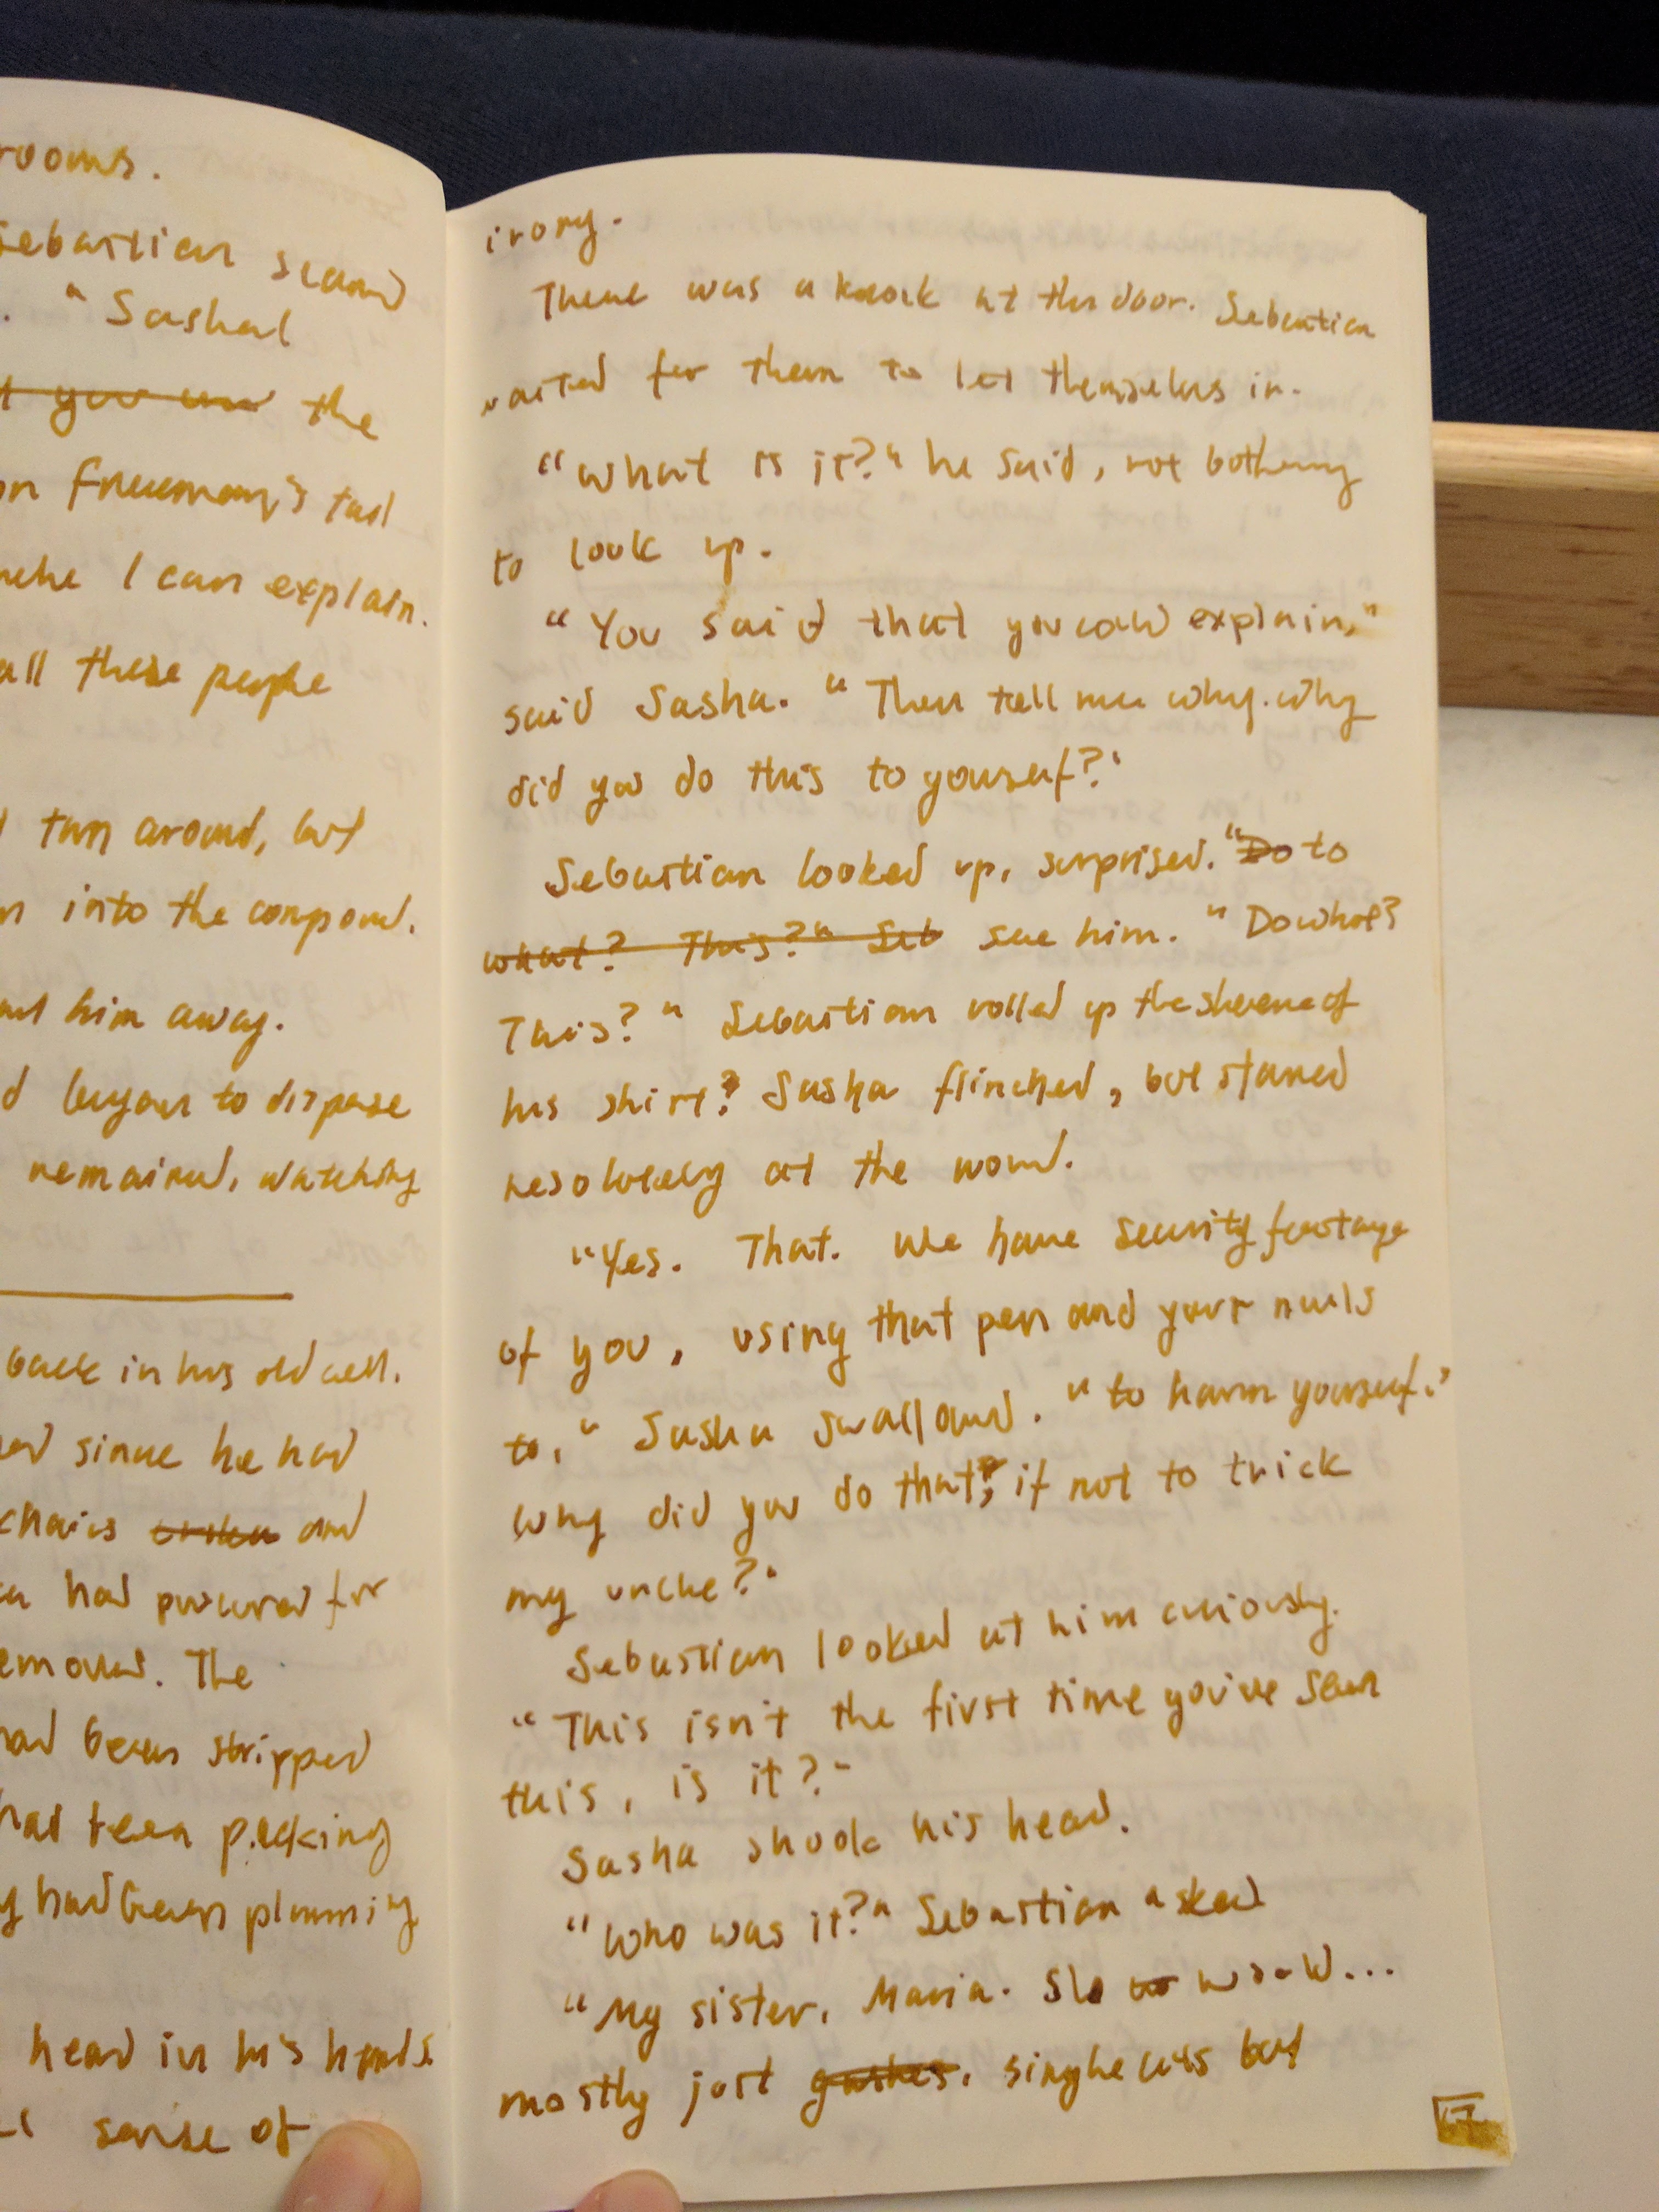 rooms.
Sebastian
. "Sasha!
the
on Freeman's tail
I can explain.
all these people
turn around, but
into the compound.
him away.
began to disperse
remained, watching
back in his old cell.
since he had
chairs and
had procured for
The
had been stripped
had been picking
had been planning
head in his hands
sense of
irony.
There was a knock at the door. Sebastian
waited for them to let themselves in.
"What is it?" he said, not bothering
to look up.
"You said that you could explain,"
said Sasha. "Then tell me why. Why
did you do this to yourself?"
Sebastian looked up, surprised. "Do to
what? This?" Seb see him. "Do what?
This?" Sebastian rolled up the sleeve of
his shirt? Sasha flinched, but stared
resolutely at the wound.
"Yes. That. We have security footage
of you, using that pen and your nails
to," Sasha swallowed. "to harm yourself."
Why did you do that, if not to trick
my uncle?"
Sebastian looked at him curiously.
"This isn't the first time you've seen
this, is it?"
Sasha shook his head.
"Who was it?" Sebastian asked
"My sister, Maria. She would...
mostly just gashes. single cuts but
67